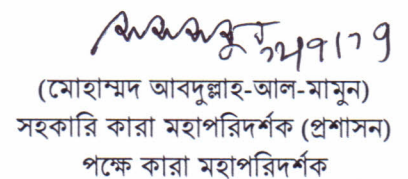 (মোহাম্মদ আবদুল্লাহ-আল-মামুন)
সহকারি কারা মহাপরিদর্শক (প্রশাসন)
পক্ষে কারা মহাপরিদর্শক